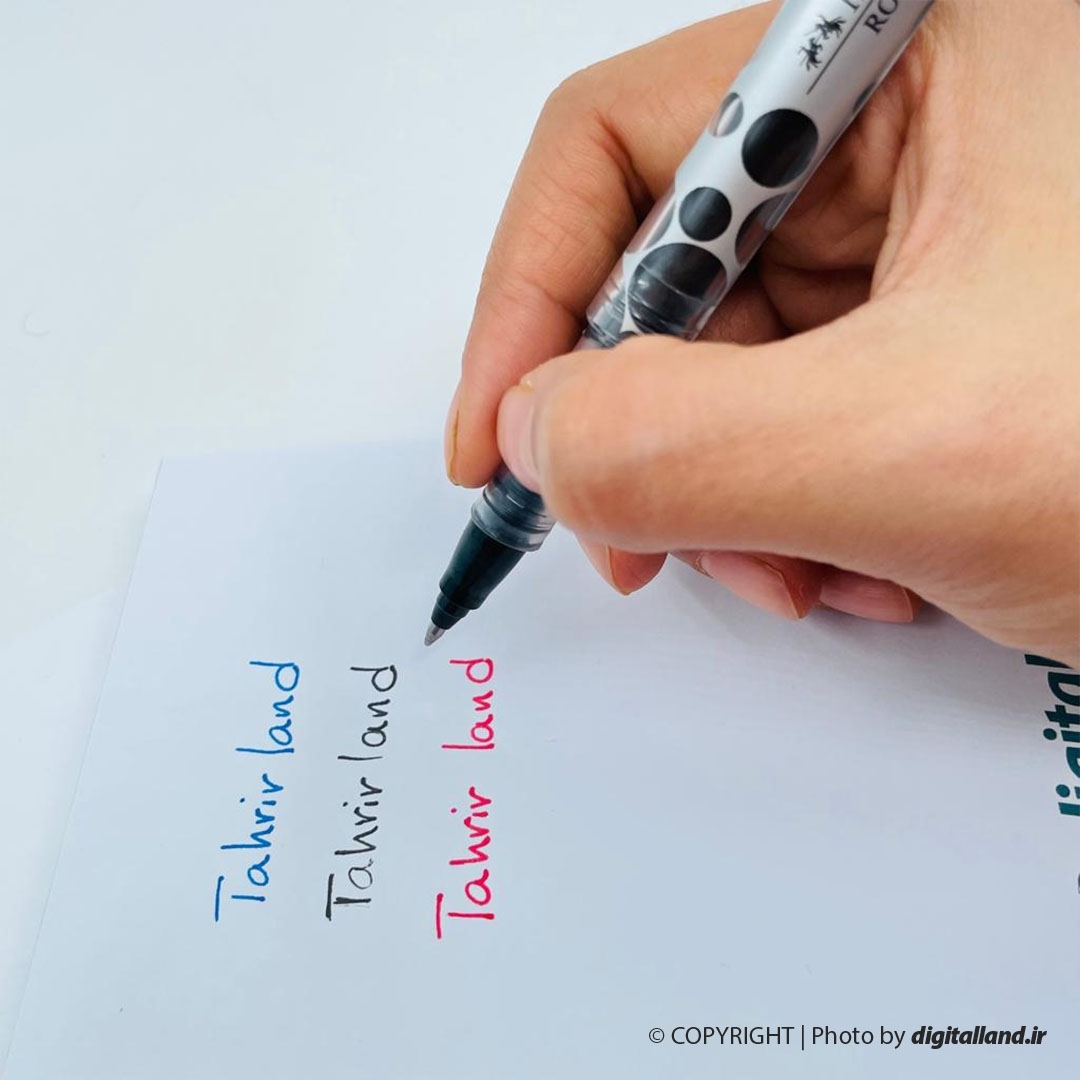 RO
Tahrir land
Tahrir land
Tahrir land
digital
© COPYRIGHT | Photo by digitalland.ir